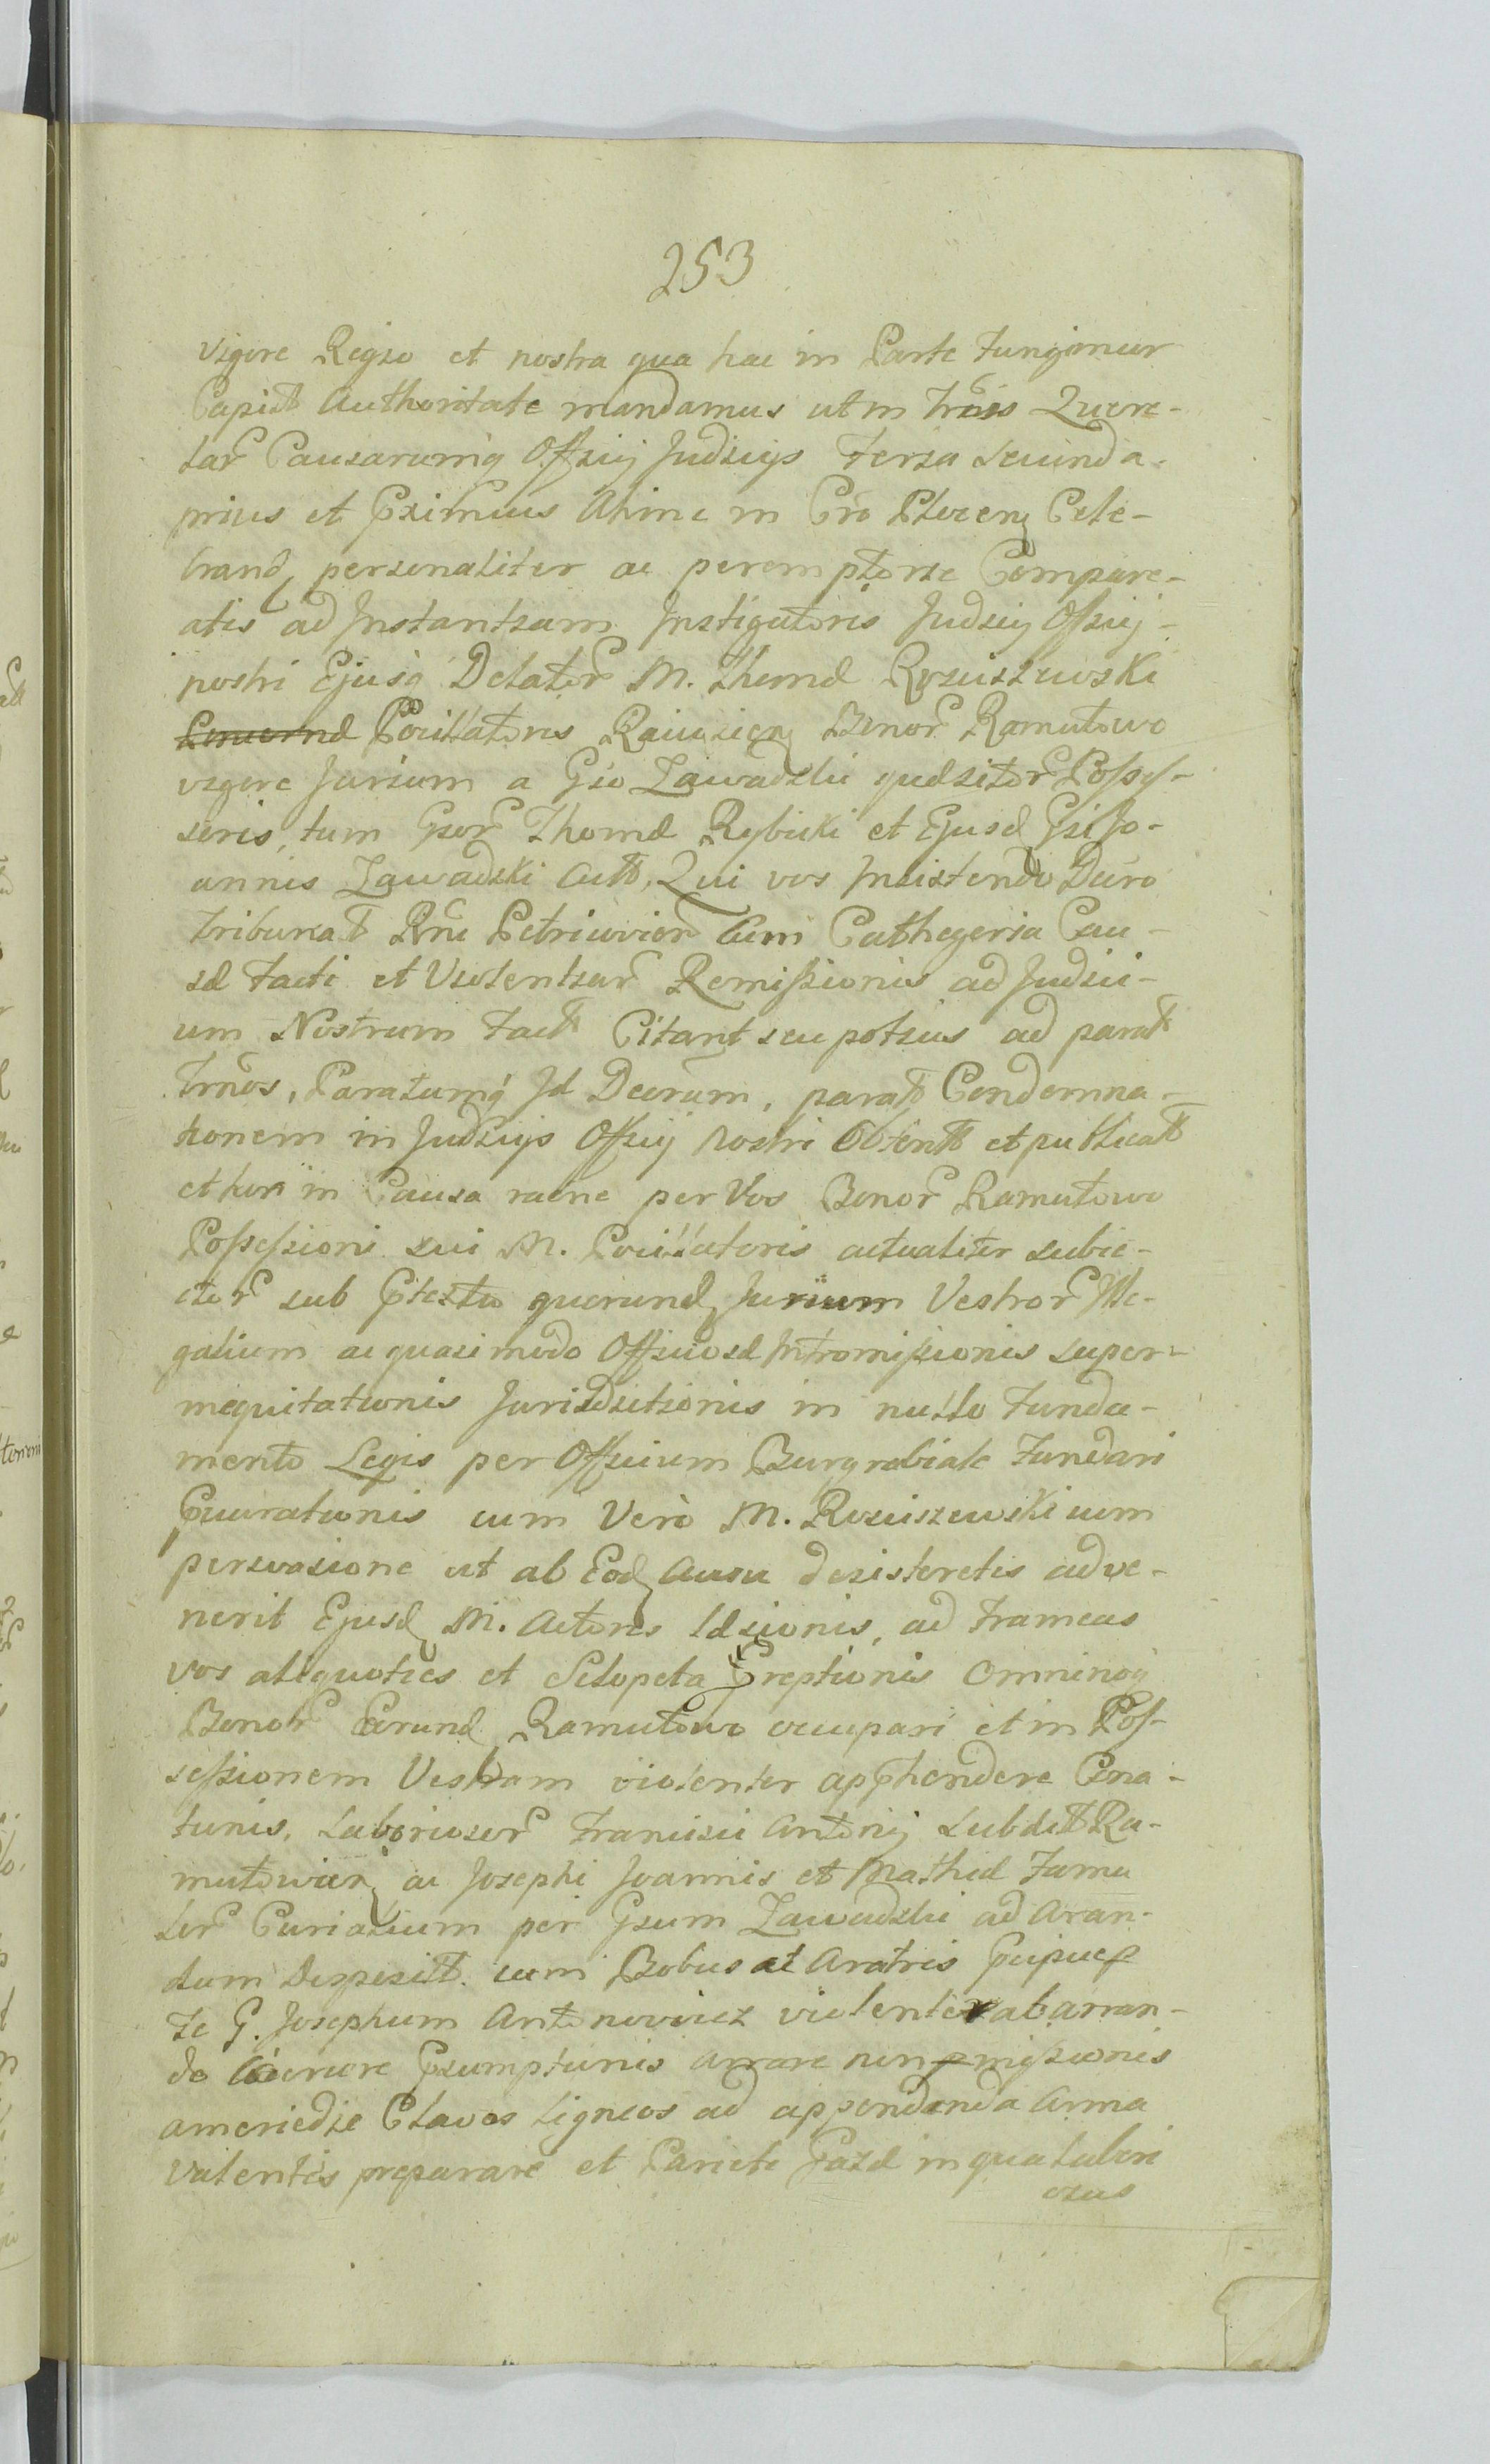 253
vigore Regio et nostra qua hac in Parte fungimur
Capitt Authoritate mandamus ut in Trnis Quere-
lar Causarumq Officij Judicijs feria secunda
prius et proximius Ahinc in Cro Plocen Cele-
brand personaliter ac peremptorie Compare-
atis ad Instantiam Instigatoris Judicij Officij
nostri Ejusq Delator M. Thomæ Rosciszewski
Pocillatoris Raciązien Bonor Ramutowo
vigore Jurium a Gso Zawadzki quæsitor Posses-
soris, tum Gsor Thomæ Rybicki et Ejusd Gsi Jo-
annis Zawadzki Actt, Qui vos Insistendo Decro
tribunat Rni Petricovien Cum Cathegoria Cau-
sæ facti et Violentiar Remissionis ad Judici-
um Nostrum fact Citant seu potius ad parat
Trnos, Paratumq Id Decrum, parat Condemna-
tionem in Judicijs Officij Nostri Obtentt et publicatt
et hoc in Causa raone per Vos Bonor Ramutowo
Possessioni sui M. Pocillatoris actualiter subie-
ctor sub Ptextu quorund Jurium Vestror Ille-
galium ac quasi modo Officiosæ Intromissionis super-
inequitationis Jurisdictionis in nullo funda-
mento Legis per Officium Burgrabiale fundari
Pcurationis cum Vero M. Rosciszewski cum
persvasione ut ab Eod Ausu desisteretis adve-
nerit Ejusd M. Actoris læsionis, ad frameas
vos aliquoties et Sclopeta Preptionis Omninoq
Bonor Eorund Ramutowo occupari et in Pos-
sessionem Vestram violenter apphendere Cona-
tunis, Laboriosor Francisci Antonij subditt Ra-
mutowien ac Josephi Joannis et Mathiæ famu
lor Curialium per Gsum Zawadzki ad Aran-
dum Disposit. cum Bobus et Aratris Pcipue p
Te G. Josephum Antonowicz violenter ab arran-
do Coercere Psumptionis Arrare non pmissionis
Clavos ligneos ad appendenda Arma
valentes preparare et Pariete in qua Labori
osus